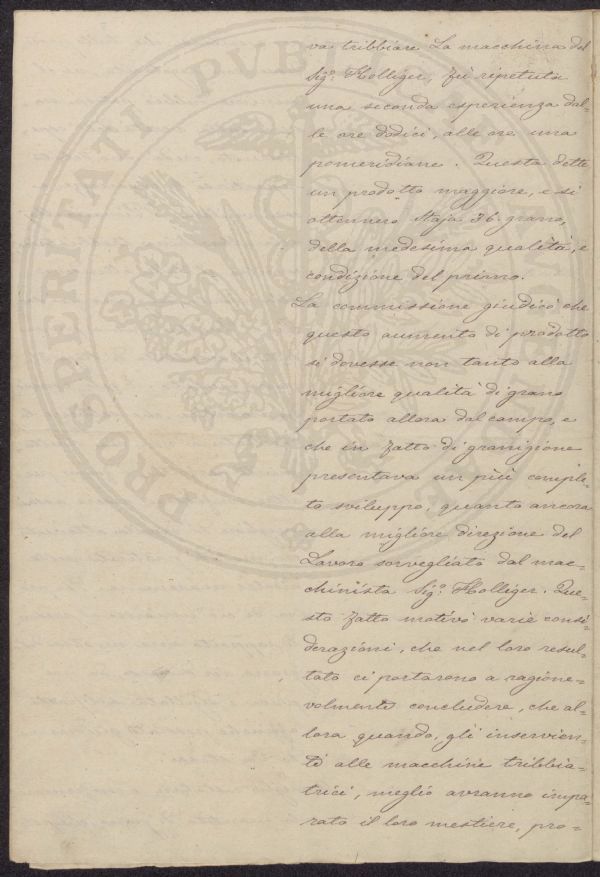 va tribbiare La macchina del
Sigº. Holliger, fù ripetuta
una seconda esperienza dal=
le ore dodici, alle ore una
pomeridiane. Questa dette
un prodotto maggiore, e si
ottennero Staja 36. grano,
della medesima qualità, e
condizione del primo.
La commissione giudicò che
questo aumento di prodotto
si dovesse non tanto alla
migliore qualità di grano
portato allora dal campo, e
che in fatto di granigione
presentava un più comple=
to sviluppo, quanto ancora
alla migliore direzione del
Lavoro sorvegliato dal mac=
chinista Sigº. Holliger. Que=
sto fatto motivò varie consi=
derazioni, che nel loro resul=
tato ci portarono a ragione=
volmente concludere, che al=
lora quando, gli inservien=
ti alle macchine tribbia=
trici, meglio avranno impa=
rato il loro mestiere, pro=
PROSPERITATI PUB